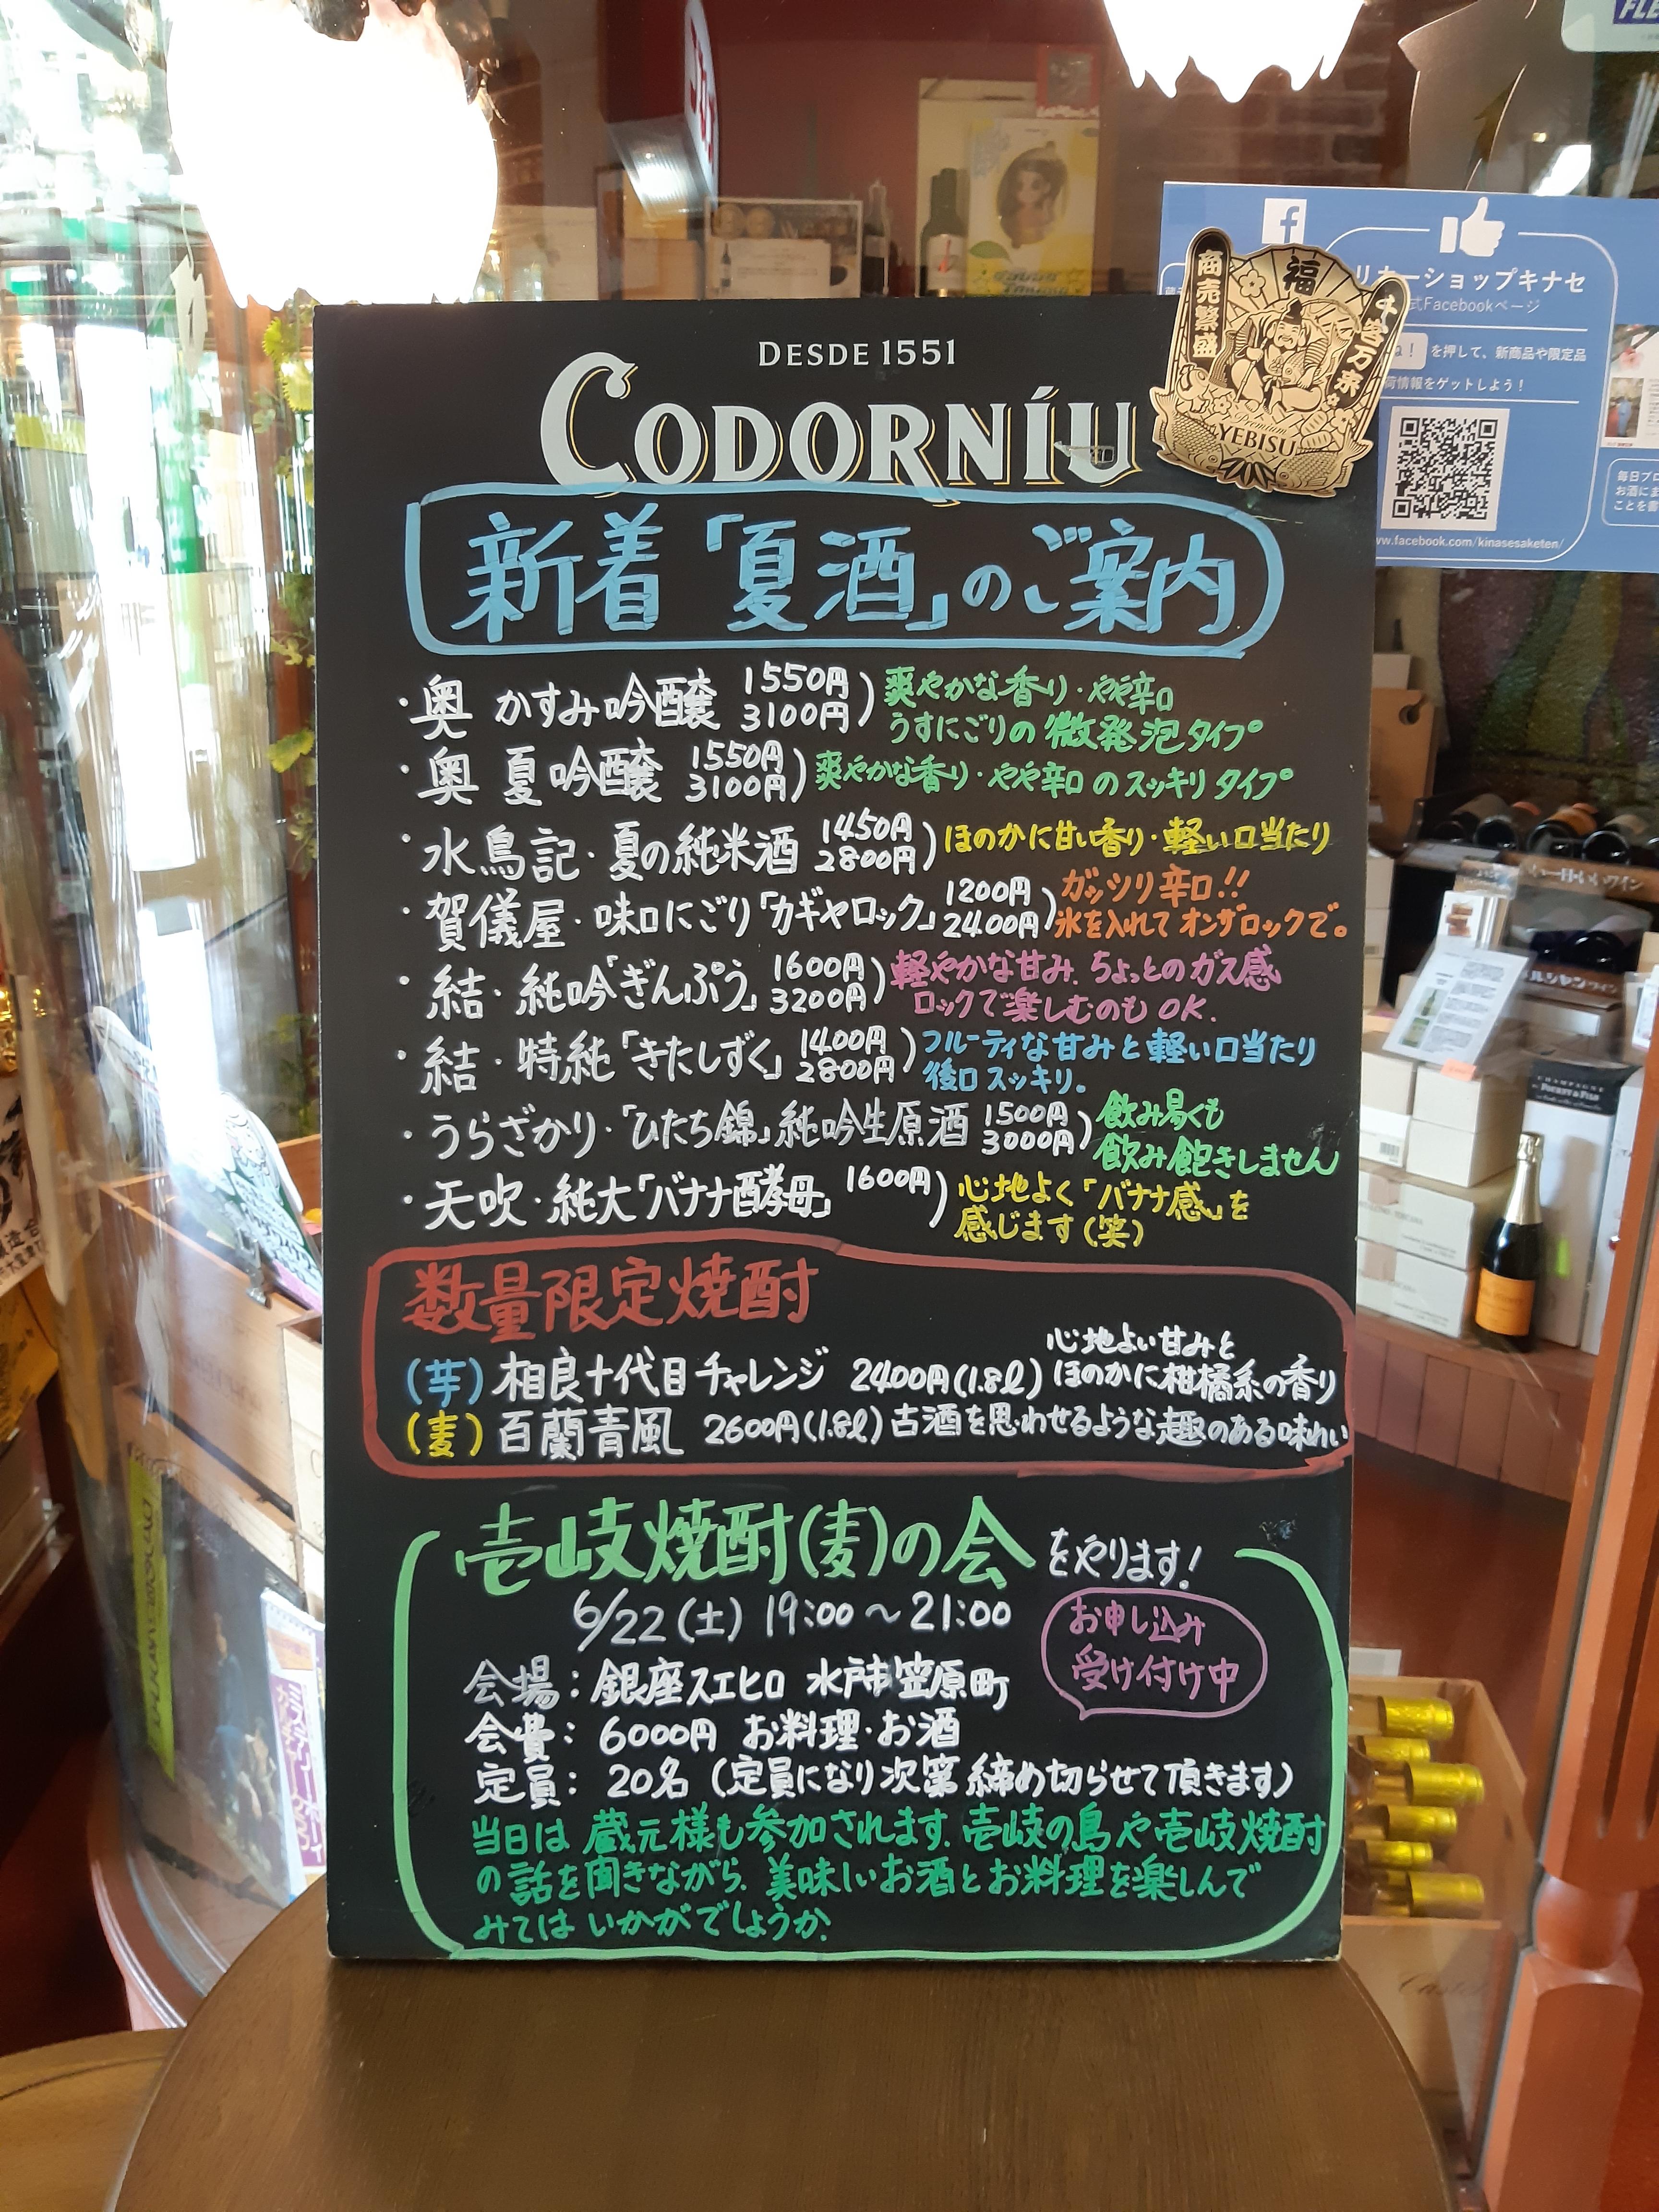 DESDE 1551
CODORNÍU
新着「夏酒」のご案内
・奥 かすみ吟醸 1550円 3100円) 爽やかな香り・やや辛口
うすにごりの微発泡タイプ
・奥 夏吟醸 1550円 3100円) 爽やかな香り・やや辛口のスッキリタイプ
・水鳥記・夏の純米酒 1450円 2800円) ほのかに甘い香り・軽い口当たり
・賀儀屋・味口にごり「カギヤロック」 1200円 2400円) ガッツリ辛口!!
氷を入れてオンザロックで。
・結・純吟「ぎんぷう」 1600円 3200円) 軽やかな甘み、ちょっとのガス感
ロックで楽しむのもOK.
・結・特純「きたしずく」 1400円 2800円) フルーティな甘みと軽い口当たり
後口スッキリ。
・うらざかり・「ひたち錦」純吟生原酒 1500円 3000円) 飲み易くも
飲み飽きしません
・天吹・純大「バナナ酵母」 1600円) 心地よく「バナナ感」を
感じます(笑)
数量限定焼酎
(芋) 相良十代目チャレンジ 2400円(1.8ℓ) 心地よい甘みと
ほのかに柑橘系の香り
(麦) 百蘭青風 2600円(1.8ℓ) 古酒を思わせるような趣のある味わい
壱岐焼酎(麦)の会をやります!
6/22(土) 19:00~21:00
お申し込み
受け付け中
会場:銀座スエヒロ 水戸市笠原町
会費:6000円 お料理・お酒
定員:20名(定員になり次第締め切らせて頂きます)
当日は蔵元様も参加されます。壱岐の島や壱岐焼酎
の話を聞きながら、美味しいお酒とお料理を楽しんで
みてはいかがでしょうか。
商売繁盛
福
千客万来
Premium
YEBISU
リカーショップキナセ
式Facebookページ
を押して、新商品や限定品
荷情報をゲットしよう!
ww.facebook.com/kinasesaketen/
毎日ブロ
お酒にま
ことを書